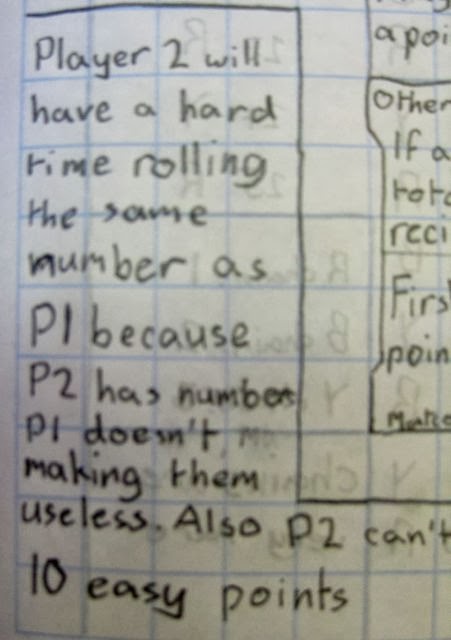 Player 2 will
have a hard
time rolling
the same
number as
P1 because
P2 has numbers
P1 doesn't,
making them
useless. Also P2 can't
10 easy points
a poi
Other
If a
tota
reci
First
poin